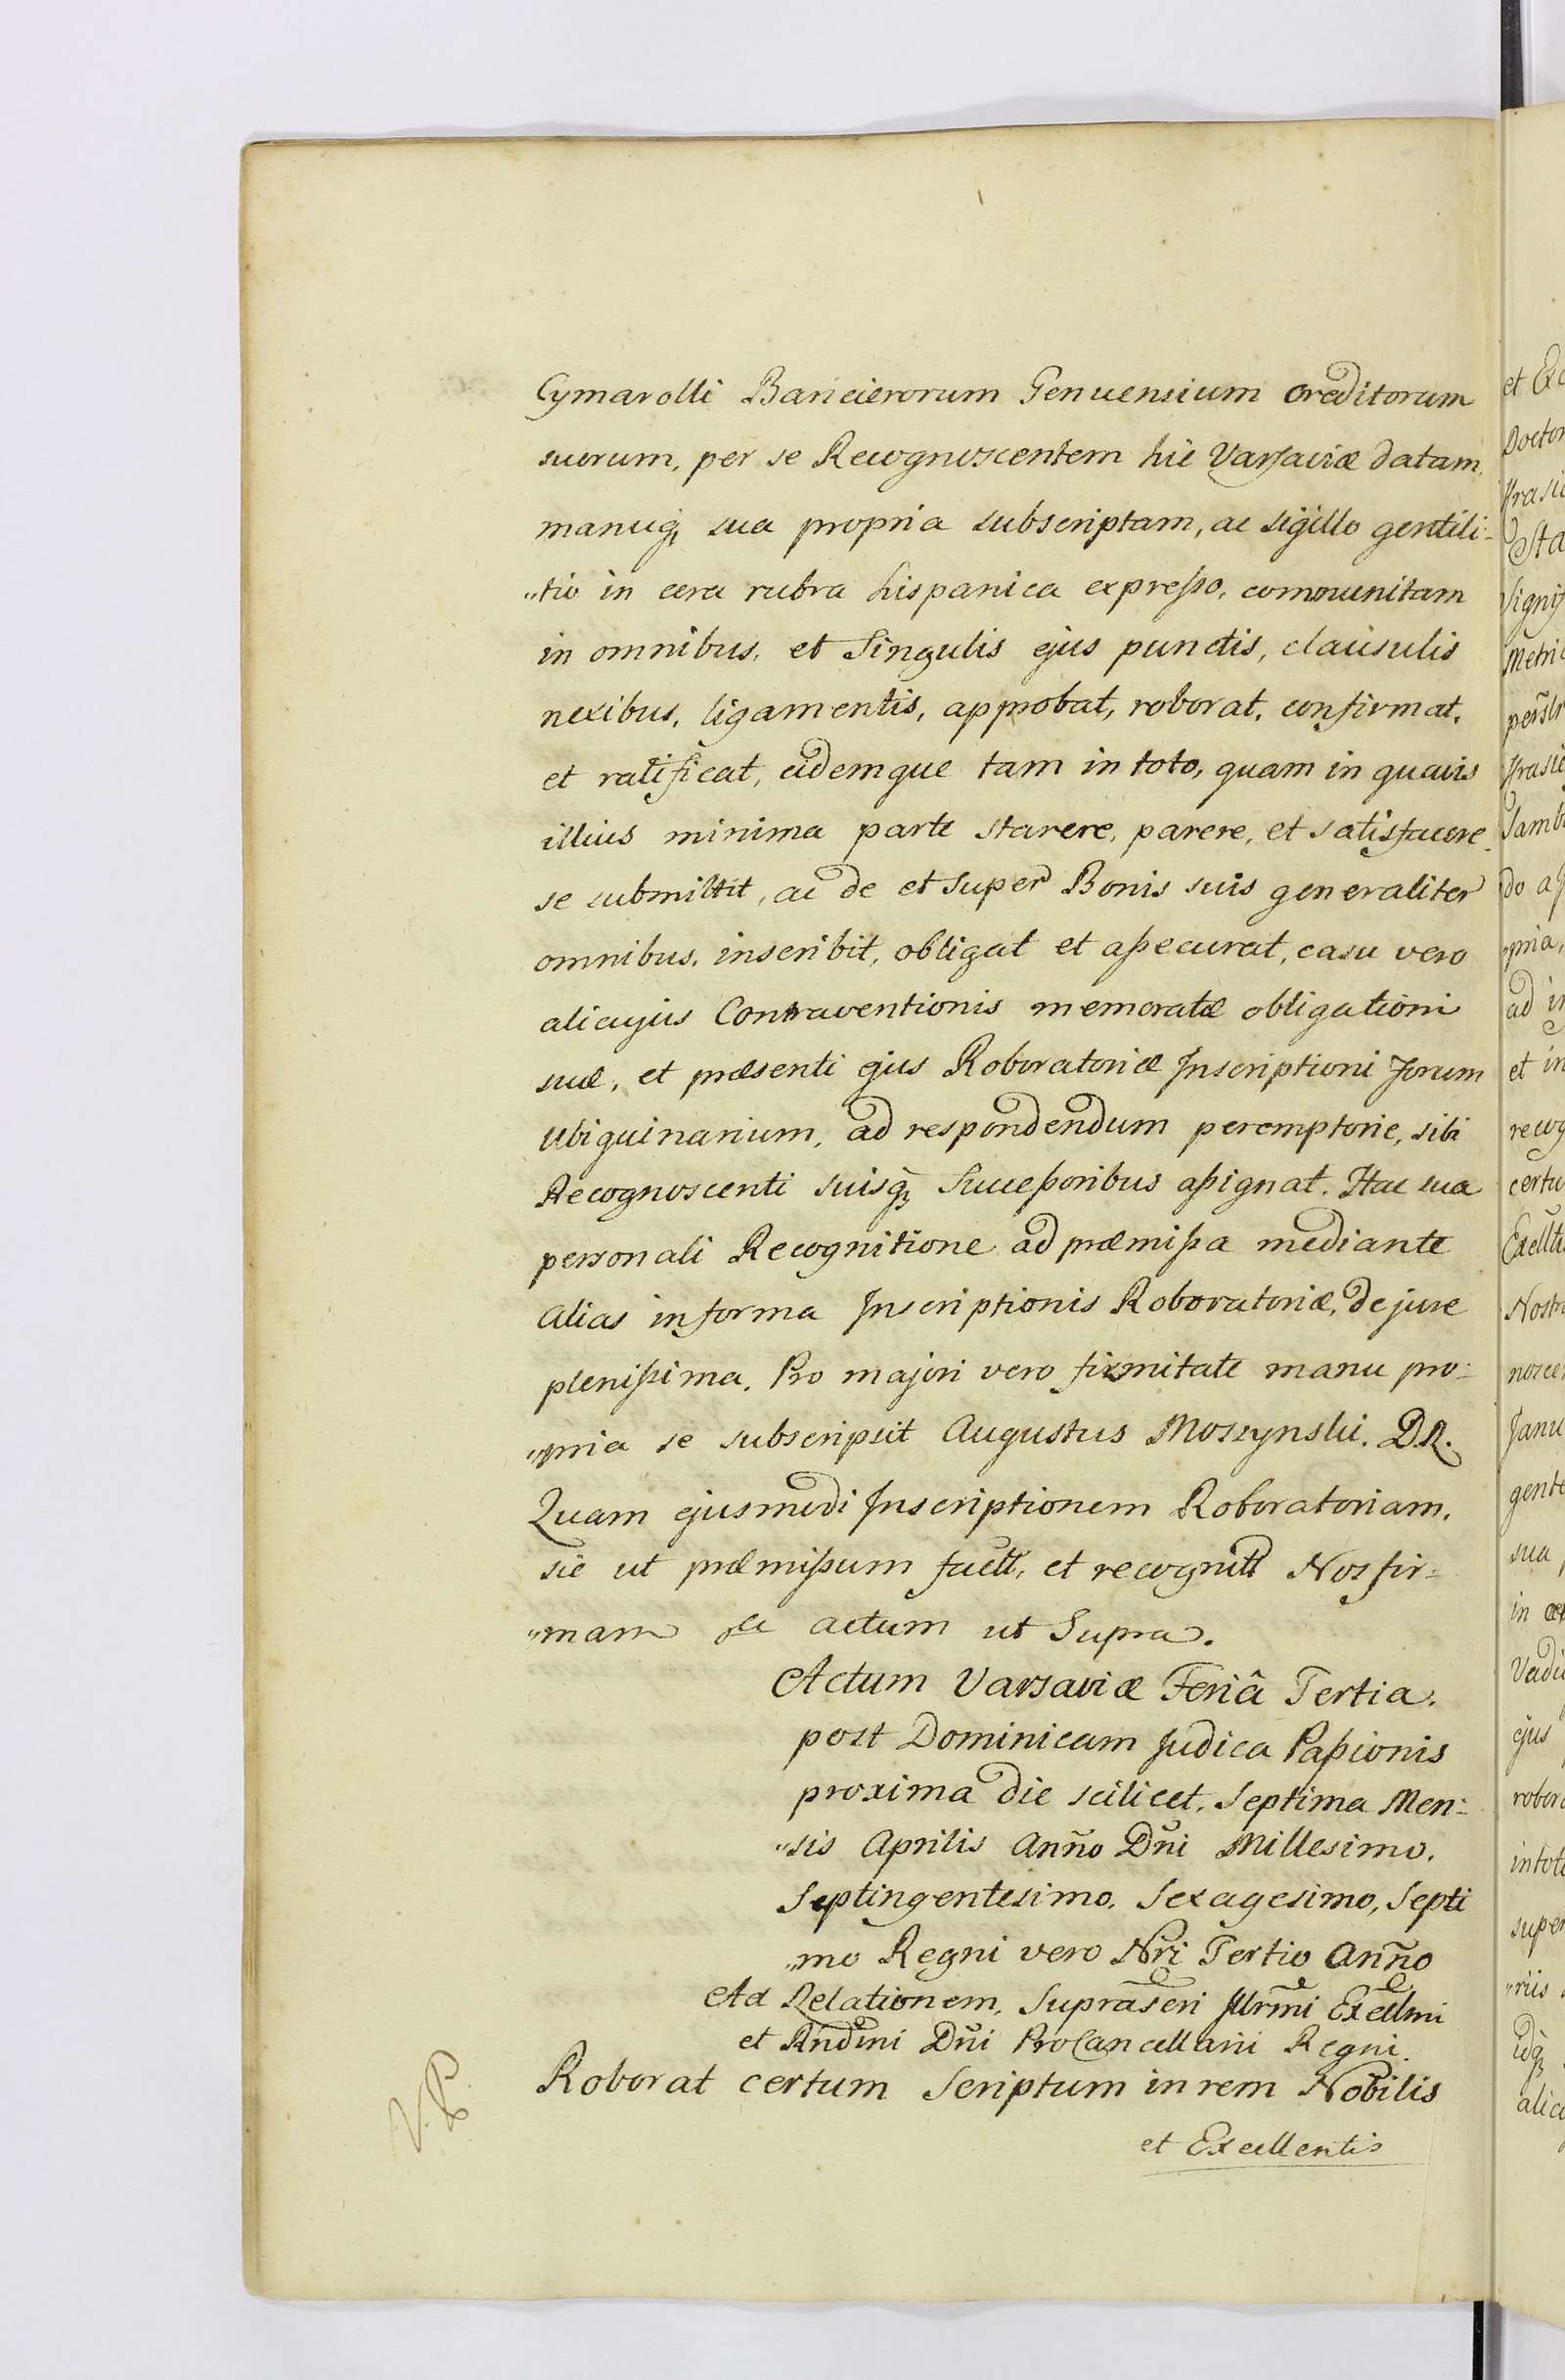 Cymarolli Bancierorum Genuensium Creditorum
suorum, per se Recognoscentem hic Varsaviæ datam,
manuq, sua propria subscriptam, ac sigillo gentili-
"tio in cera rubra hispanica expresso, communitam
in omnibus, et Singulis ejus punctis, clausulis
nexibus, ligamentis, approbat, roborat, confirmat,
et ratificat, eidemque tam in toto, quam in quavis
illius minima parte starere, parere, et satisfacere
se submittit, ac de et Super Bonis suis generaliter
omnibus, inscribit, obligat et assecurat, casu vero
alicujus Contraventionis memoratæ obligationi
suæ, et præsenti ejus Roboratoriæ Inscriptioni Forum
Ubiquinarium, ad respondendum peremptorie, sibi
Recognoscenti suisq, Successoribus assignat. Hac sua
personali Recognitione ad præmissa mediante
Alias in forma Inscriptionis Roboratoriæ, de jure
plenissima. Pro majori vero firmitate manu pro-
"pria se subscripsit Augustus Moszynski. D.R.
Quam ejusmodi Inscriptionem Roboratoriam,
sic ut præmissum factt, et recognitt Nos fir-
"mam actum ut Supra.
Actum Varsaviæ Feriâ Tertia.
post Dominicam Judica Passionis
proxima die scilicet, Septima Men-
"sis Aprilis Anño Dñi Millesimo,
Septingentesimo, Sexagesimo, Septi
"mo Regni vero Nri Tertio Anño
Ad Relationem, Suprascri Illrmi Excllmi
et Rndmi Dñi ProCancellarii Regni.
Roborat certum Scriptum in rem Nobilis
et Excellentis